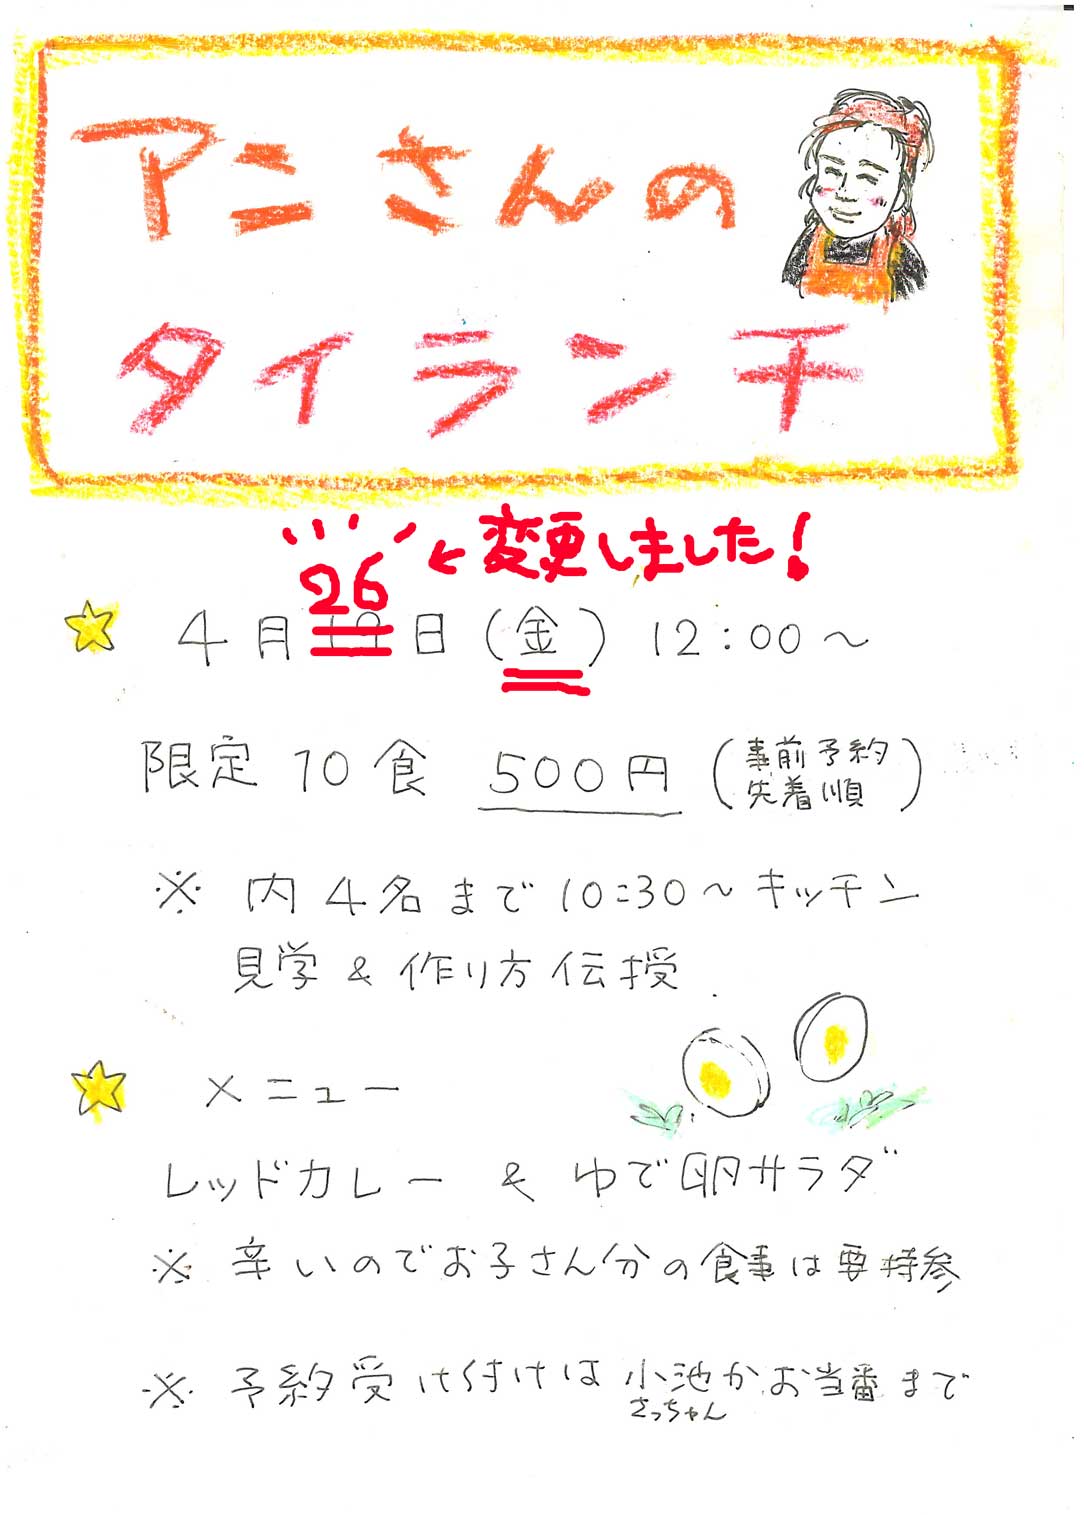 アンさんの
タイランチ
26 ← 変更しました!
4月日(金) 12:00～
限定 10食 500円 (事前予約
先着順)
※ 内4名まで10:30～キッチン
見学 & 作り方伝授
メニュー
レッドカレー & ゆで卵サラダ
※ 辛いのでお子さん分の食事は要持参
※ 予約受け付けは小池かお当番まで
さっちゃん